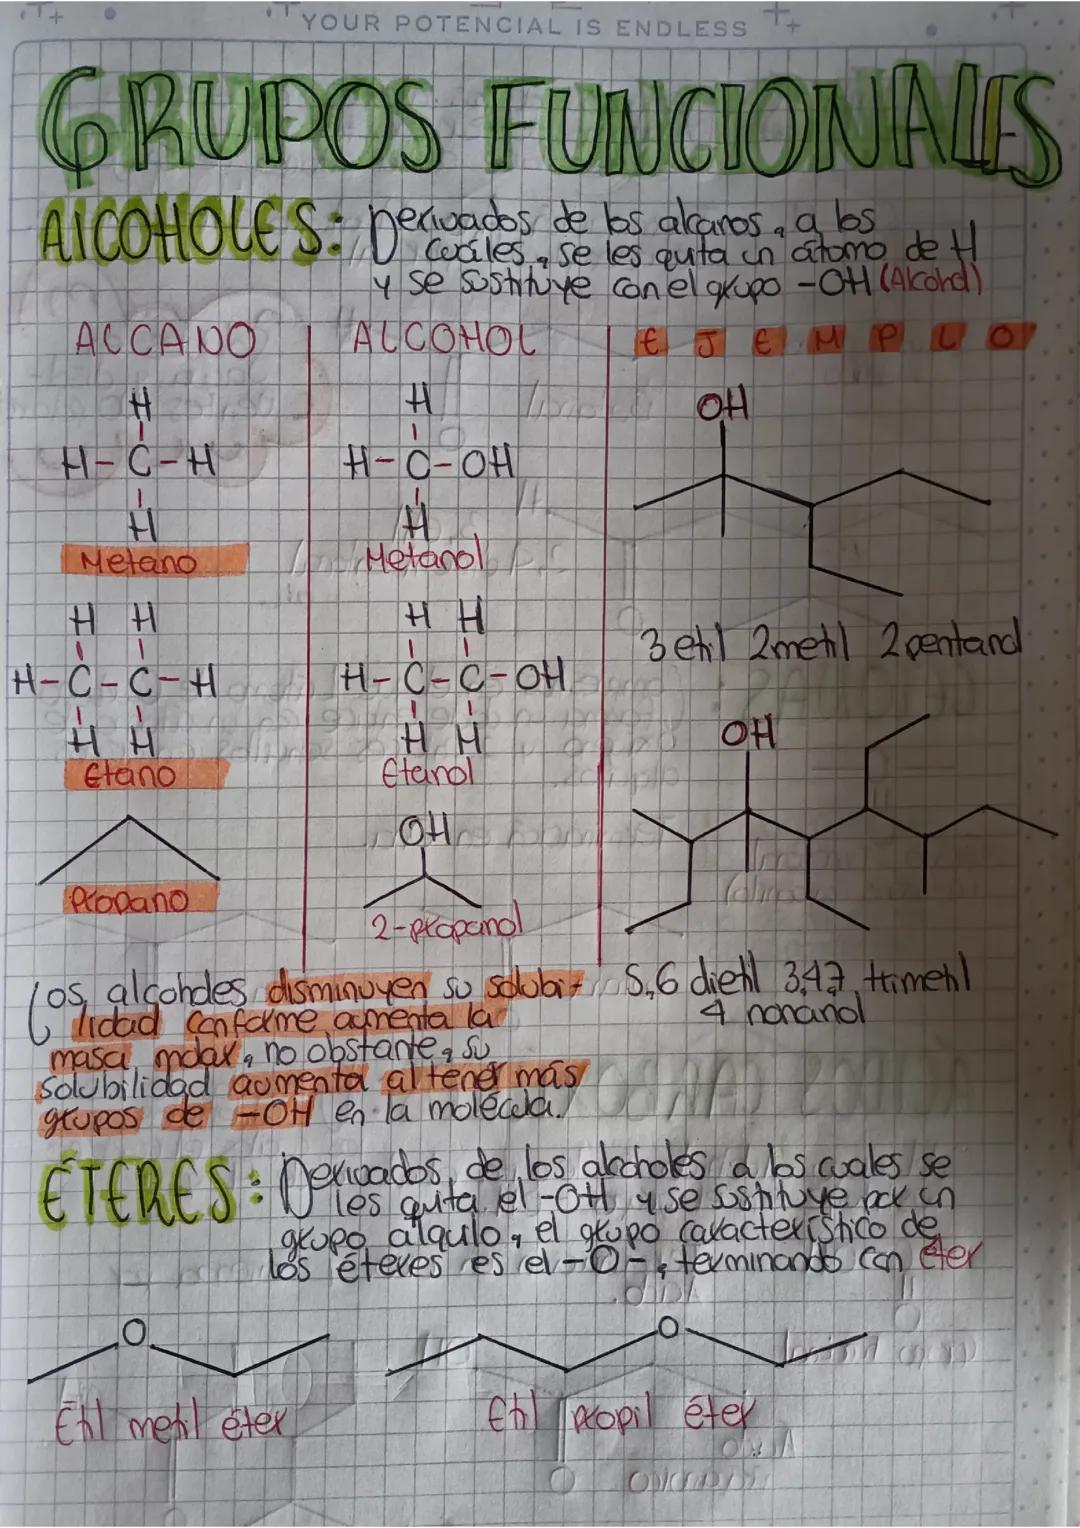 YOUR POTENCIAL IS ENDLESS
GRUPOS FUNCIONALES
ALCOHOLES: Derivados de los alcanos, a los
cuáles, se les quita un átomo de H
y se sustituye con el grupo -OH (Alcohol)
ALCANO ALCOHOL EJEMPLO
H H OH
H-C-H H-C-OH
H H
Metano Metanol
H H H H
3 etil 2 metil 2 pentanol
H-C-C-H H-C-C-OH
H H H H OH
Etano Etanol
OH
Propano 2-propanol
Los alcoholes disminuyen su solubi- 5,6 dietil 3,4,7 trimetil
lidad conforme aumenta la 4 nonanol
masa molar, no obstante, su
solubilidad aumenta al tener más
grupos de -OH en la molécula.
ÉTERES: Derivados de los alcholes a los cuales se
les quita el -OH y se sustituye por un
grupo alquilo, el grupo característico de
los éteres es el -O-, terminando con éter
O O
Etil metil éter Etil propil éter